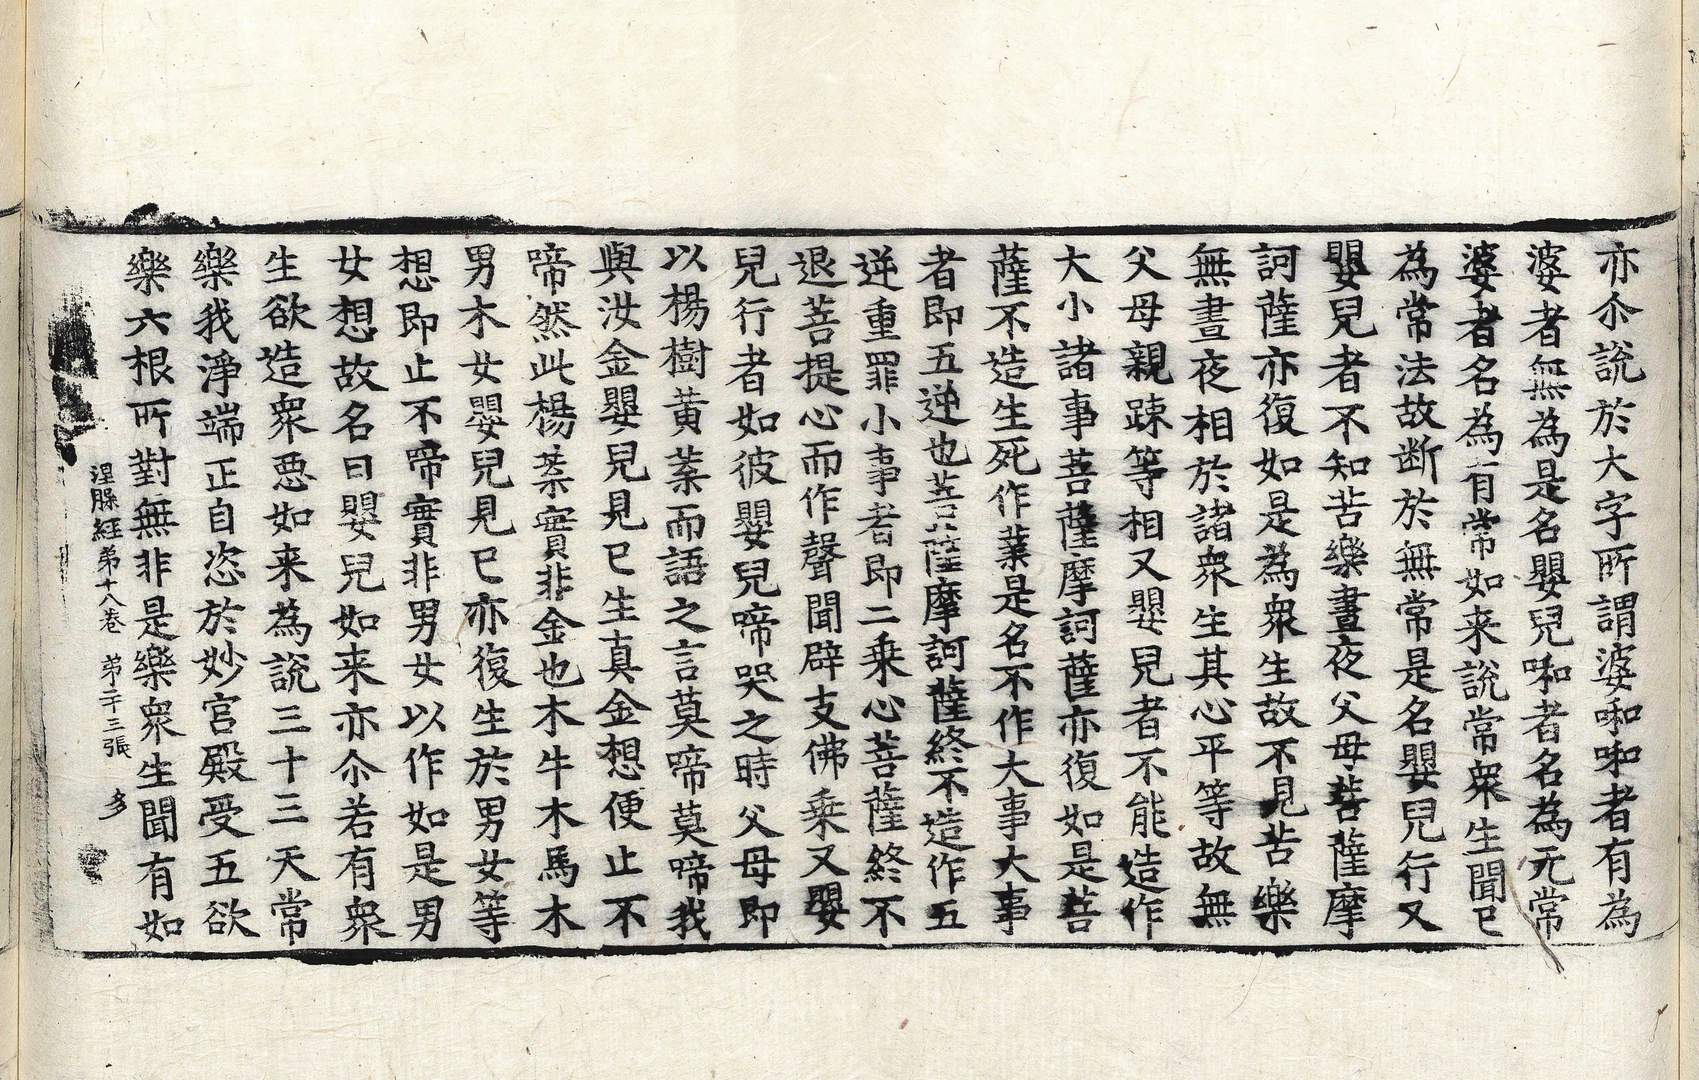 亦尒說於大字所謂婆啝啝者有為
婆者無為是名嬰兒啝者名為无常
婆者名為有常如来說常衆生聞已
為常法故断於無常是名嬰兒行又
嬰兒者不知苦樂晝夜父母菩薩摩
訶薩亦復如是為衆生故不見苦樂
無晝夜相於諸衆生其心平等故無
父母親踈等相又嬰兒者不能造作
大小諸事菩薩摩訶薩亦復如是菩
薩不造生死作業是名不作大事大事
者即五逆也菩薩摩訶薩終不造作五
逆重罪小事者即二乗心菩薩終不
退菩提心而作聲聞辟支佛乗又嬰
兒行者如彼嬰兒啼哭之時父母即
以楊樹黄葉而語之言莫啼莫啼我
與汝金嬰兒見已生真金想便止不
啼然此楊葉實非金也木牛木馬木
男木女嬰兒見已亦復生於男女等
想即止不啼實非男女以作如是男
女想故名曰嬰兒如来亦尒若有衆
生欲造衆惡如来為說三十三天常
樂我淨端正自恣於妙宮殿受五欲
樂六根所對無非是樂衆生聞有如
涅槃經第十八卷　第二十三張　多